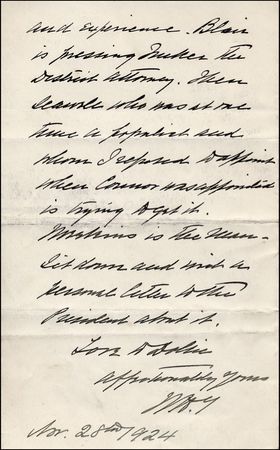 and experience. Blair
is pressing Tucker the
District Attorney. Then
Seawell who was at one
time a populist and
whom I refused to appoint
when Connor was appointed
is trying to get it.
is the man.
Sit down and write a
personal letter to the
President about it.
Love to
Affectionately Yours
Nov. 28th 1924